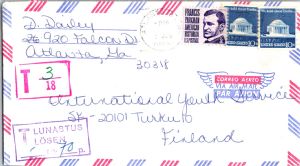 D. Dailey
920 Falcon Dr
Atlanta, Ga
30318
FRANCIS
PARKMAN
AMERICAN
HISTORIAN
UNITED STATES
10c
10c
T 3/18
CORREO AEREO
VIA AIR MAIL
PAR AVION
International Youth Service
SF-20101 Turku 10
Finland
T LUNASTUS
LÖSEN
70 p.